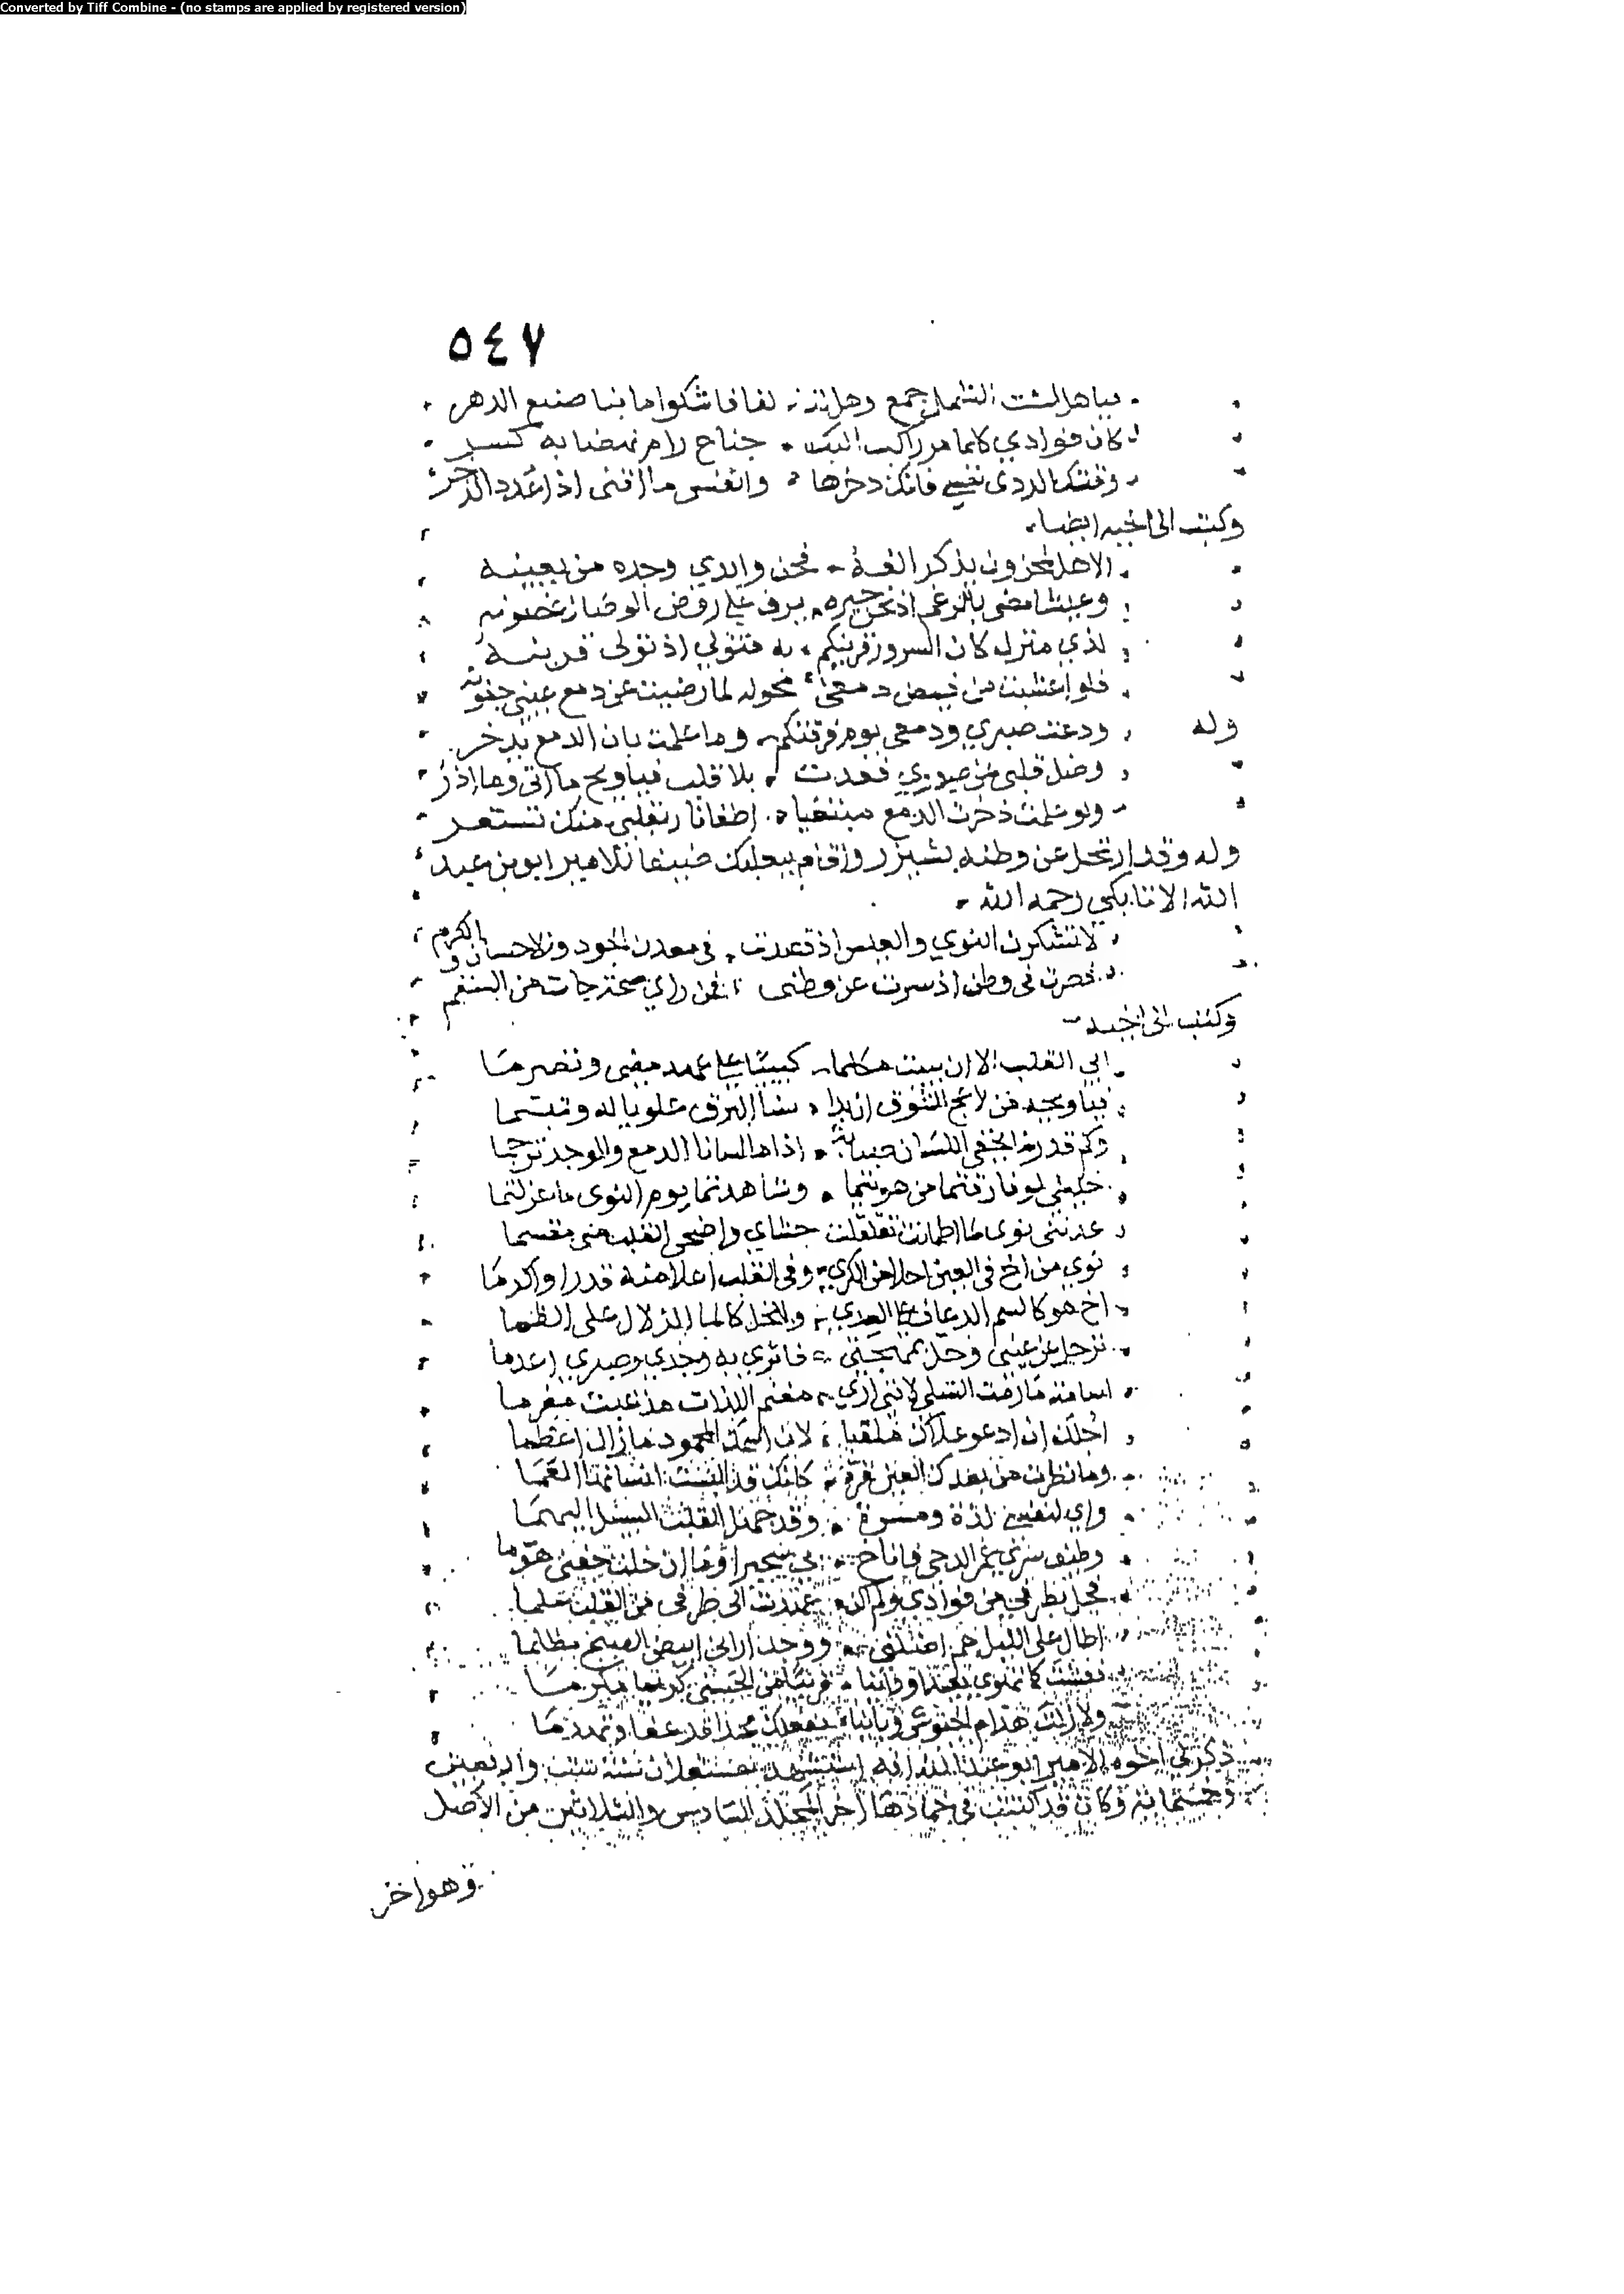 Converted by Tiff Combine - (no stamps are applied by registered version)
٥٤٧
فياهل لشت الشمل جمع وهل لنا لقا فاشكوا ما بنا صنع الدهر
كان فوادي كلما مر راكب اليك جناح رام نهضا به كسر
وقتك الردى نفسي فانك دخرها وانفس ما اقنى اذا عدد الدخر
وكتب الى اخيه ايضا
الا هل لمحزون بذكر الفه فحن وابدي وجده من يعينه
وعيشا مضى بالرغم اذ نحن جيره يرف على روض الوصال غصونه
لذي منزل كان السرور قرينكم به فتولي اذ تولى قرينه
فلو اعشبت من فيض دمعى محوله لما رضيت عن دمع عيني جفونه
وله ودعت صبري ودمعى يوم فرقتكم وما علمت بان الدمع يدخر
وضل قلبى من صدري فعدت بلا قلب فياويح ما اتى وما اذر
ولو علمت ذخرت الدمع مبتغيا اطفا نار بقلبى منك تستعر
وله وقد ارتحل عن وطنه بشيزر واقام ببعلبك ضيفا للامير ابو بن عبد
الله الاتابكي رحمه الله
لاشكرن النوي والعيس اذ قعدت فى معدن الجود والاحسان والكرم
فصرت فى وطن اذ سرت عن وطنى فمن راي صحة جات من السقم
وكتب الى اخيه
ابي القلب الا ان يبيت مكلما كئيبا على عهد مضى وتصرما
فيا ويحه من لائج الشوق ان بدا سنا البرق علويا له وتبسما
وكم قدر ما يخفى اللسان صبابة اذا ما لسانا الدمع والوجد ترجما
خليلى لو فارقتما من هويتما وشاهدتما يوم النوى ما عزلتما
عدتنى نوى ما اطمانت تقلقلت حشاي واضحى القلب منى مقسما
نوي من اخ فى العين احلا من الكري وفى القلب اعلا منه قدرا واكرما
اخ هو كالسم الدعاف على العدي وللخل كالما الزلال على الظما
ترحل عن عينى وحل بمهجتى فاثري به وجدي وصبري اعدما
اسامة ما رمت التسلى لاننى اري مغنم اللذات مذ غبت مغرما
اجلك ان ادعو علاك ملقبا لان اسمك المحمود ما زال اعظما
وما نظرت من بعدك العين قرة كانك قد البست انسانها العما
واي لنفسي لذة ومسرة وقد حمل القلب
وطيف سري فى الدجى فاناخ بي سحيرا وما ان خلت جفنى هوما
فحل بطرفي من فوادي ولم اكن عهدت الى طرفى من القلب سلما
اطال على الليل هم امتلنى ووجد اراني ابيض الصبح مظلما
فعشت كما تهوي بعيدا ودانيا قريبا من الحسنى كريما مكرما
ولا زلت هذام الجيوش وبانيا بفعلك مجدا قد عفا وتهدما
ذكر لى اخوه الامير ابو عبد الله انه استشهد بعسقلان سنة ست واربعين
وخمسمائة وكان قد كتبت فى حماة هذا اخر المجلد السادس والثلاثين من الاصل
وهو اخر